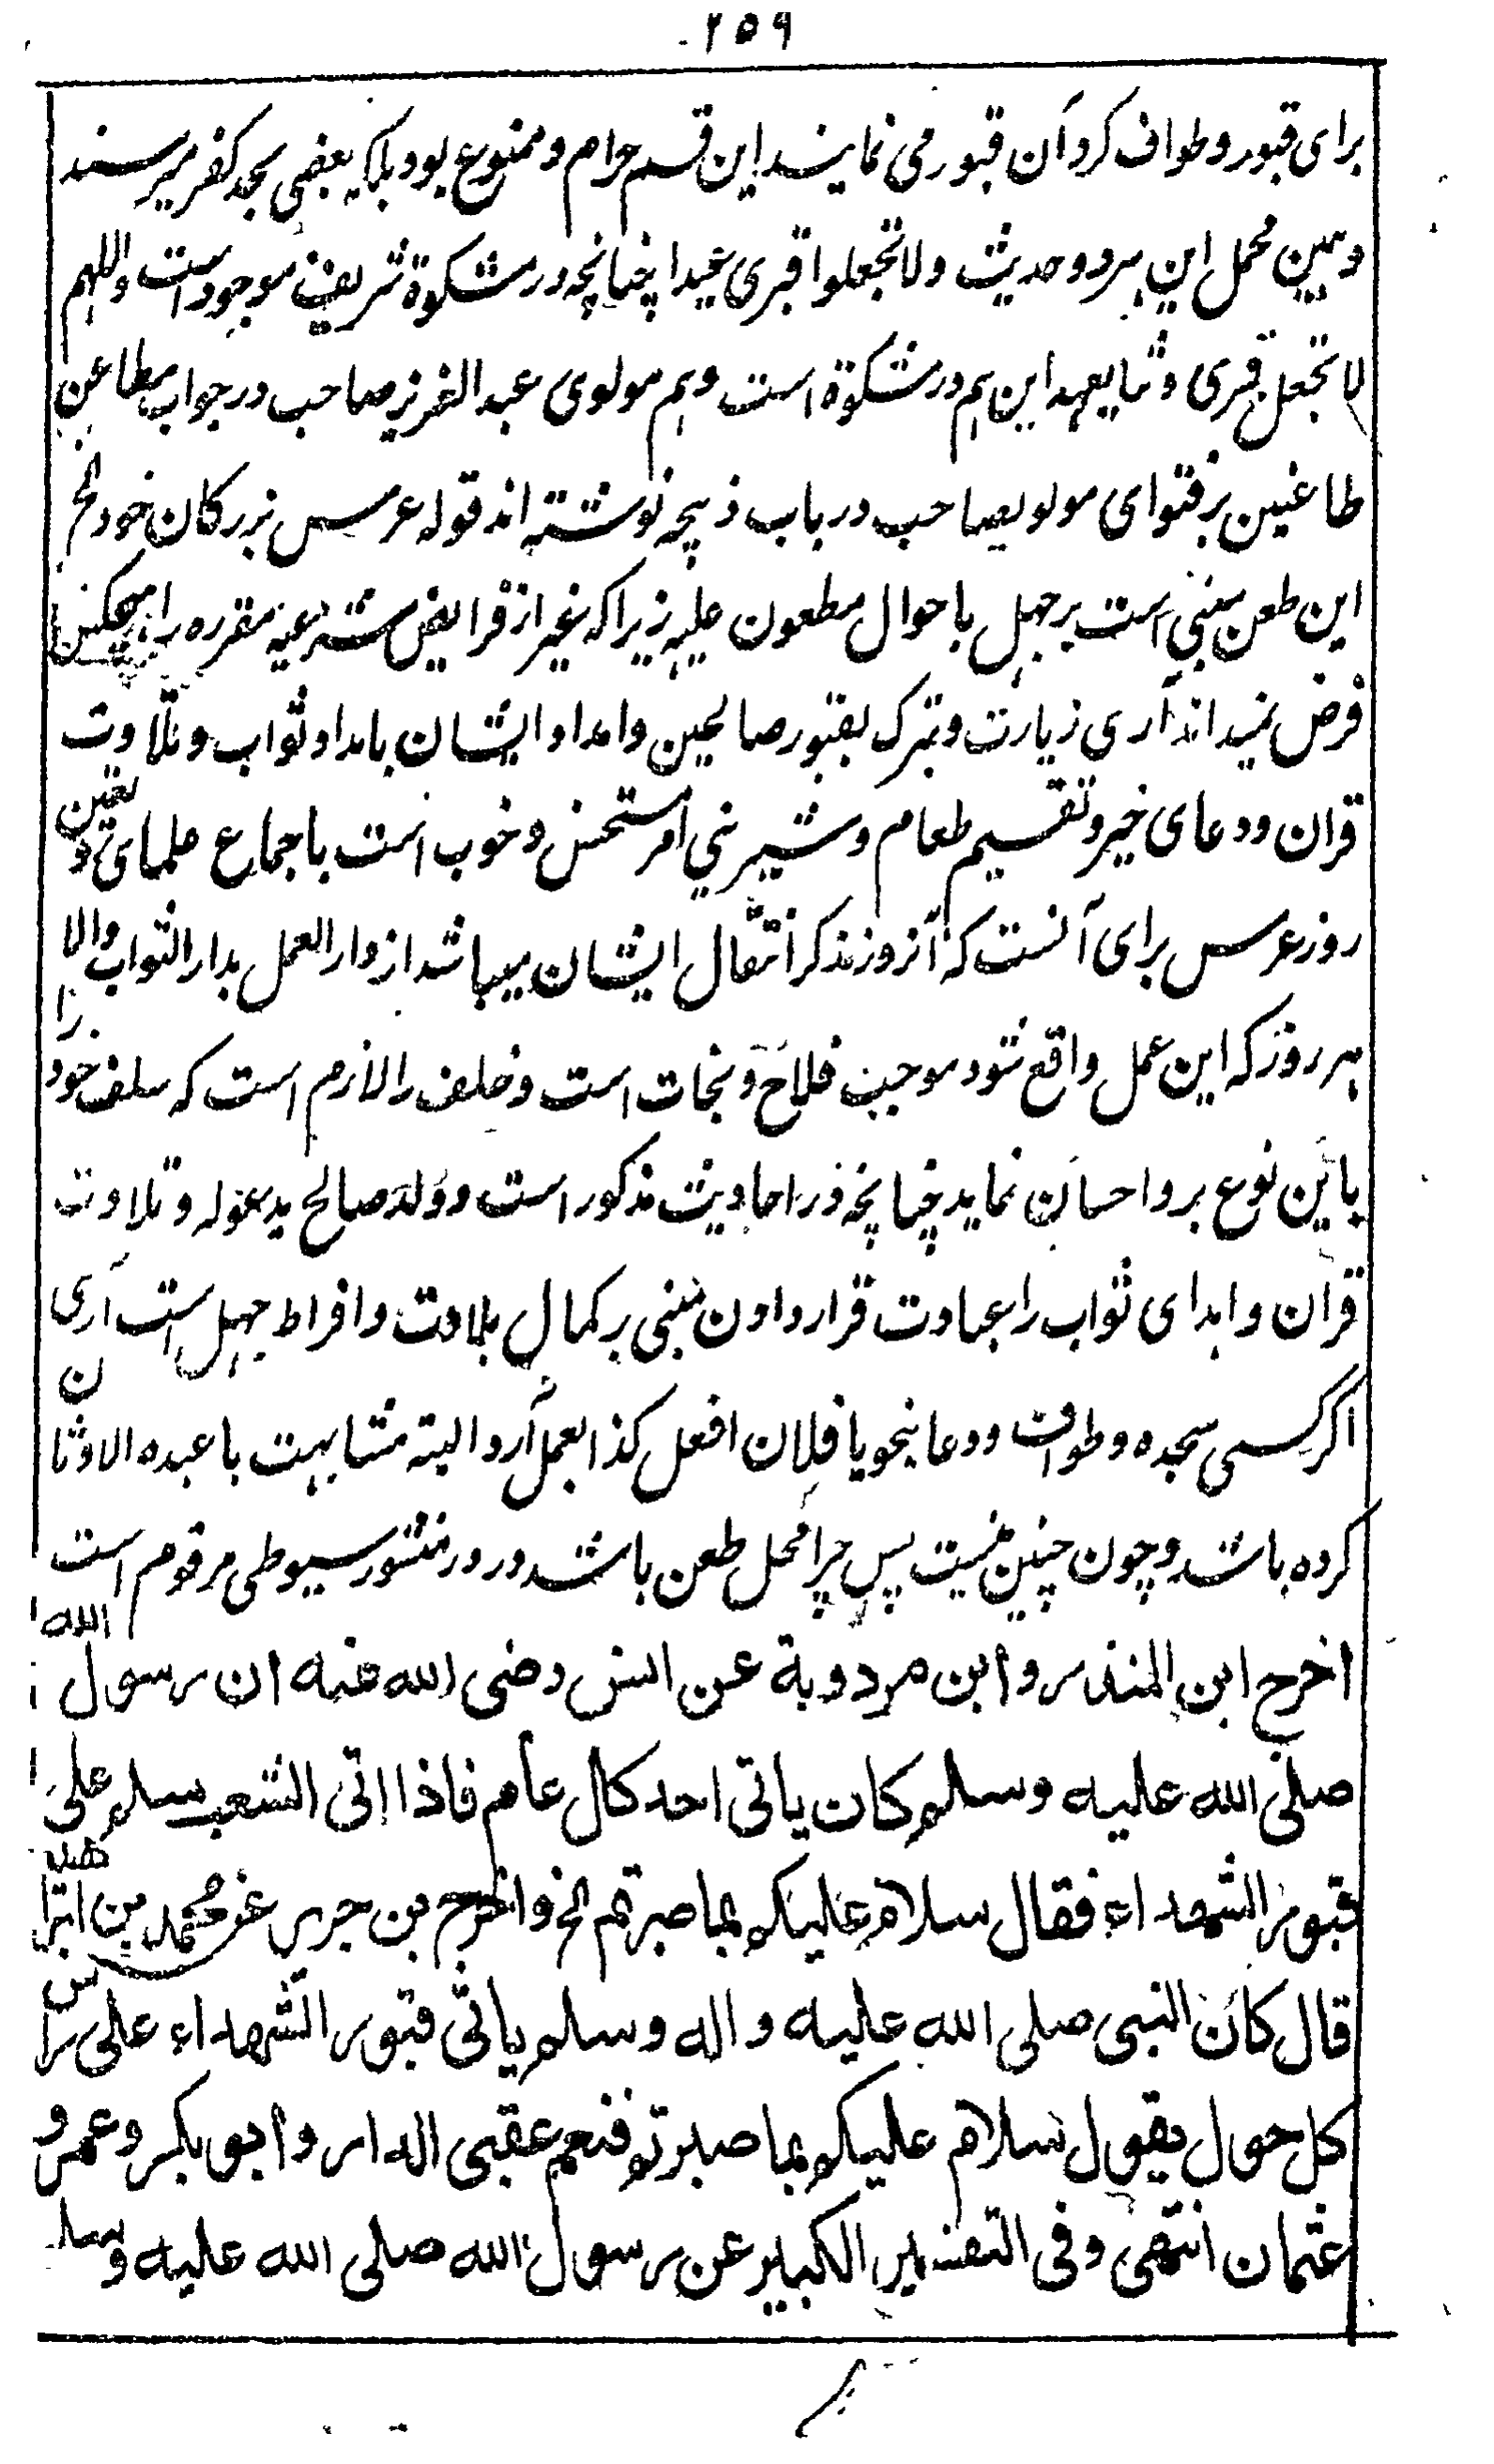 ۲۵۹
برای قبور و طواف کرد آن قبور می نمایند این قسم حرام و ممنوع بود بلکه بعضی بحد کفر میرسند
و همین محمل این هر دو حدیث ولا تجعلوا قبری عیدا چنانچه در مشکوة شریف موجود است واللهم
لا تجعل قبری وثنا یعبد این هم در مشکوة است و هم مولوی عبد العزیز صاحب در جواب مطاعن
طاعنین بر فتوای مولویصاحب در باب ذبیحه نوشته اند قوله عرس بزرکان خود الخ
این طعن مبنی است بر جهل باحوال مطعون علیه زیرا که غیر از فرایض شرعیه مقرره را هیچکس
فرض نمیداند آری زیارت و تبرک بقبور صالحین و امداد ایشان بامداد ثواب و تلاوت
قران و دعای خیر و تقسیم طعام و شیرینی امر مستحسن و خوب است باجماع علمای و تعین
روز عرس برای آنست که آنروز مذکر انتقال ایشان میباشد از دار العمل بدار الثواب والا
هر روز که این عمل واقع شود موجب فلاح و نجات است و خلف را لازم است که سلف خود را
باین نوع بر و احسان نماید چنانچه در احادیث مذکور است و ولد صالح یدعو له و تلاوت
قران و اهدای ثواب را عبادت قرار دادن مبنی بر کمال بلادت و افراط جهل است آری
اگر کسی سجده و طواف و دعا بنحو یا فلان افعل کذا بعمل آرد البته مشابهت با عبده الاوثان
کرده باشد و چون چنین نیست پس چرا محل طعن باشد و در در منثور سیوطی مرقوم است
اخرج ابن المنذر وابن مردوبة عن انس رضی الله عنه ان رسول الله
صلی الله علیه وسلم کان یاتی احد کل عام فاذا اتی الشعب سلم علی
قبور الشهداء فقال سلام علیکم بما صبرتم الخ واخرج بن جریر عن محمد بن ابراهیم
قال کان النبی صلی الله علیه واله وسلم یاتی قبور الشهداء علی راس
کل حول یقول سلام علیکم بما صبرتم فنعم عقبی الدار وابو بکر وعمر و
عثمان انتهی وفی التفسیر الکبیر عن رسول الله صلی الله علیه وسلم